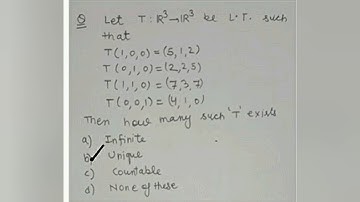 Q Let T: ℝ³→ℝ³ be L.T. such
that
T(1,0,0)=(5,1,2)
T(0,1,0)=(2,2,5)
T(1,1,0)=(7,3,7)
T(0,0,1)=(4,1,0)
Then how many such 'T' exists
a) Infinite
b) Unique
c) Countable
d) None of these